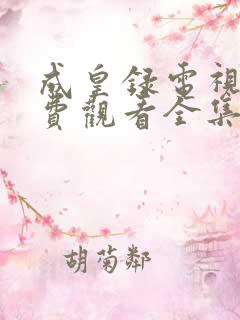 成皇録電視
費觀看全集
胡菊鄰